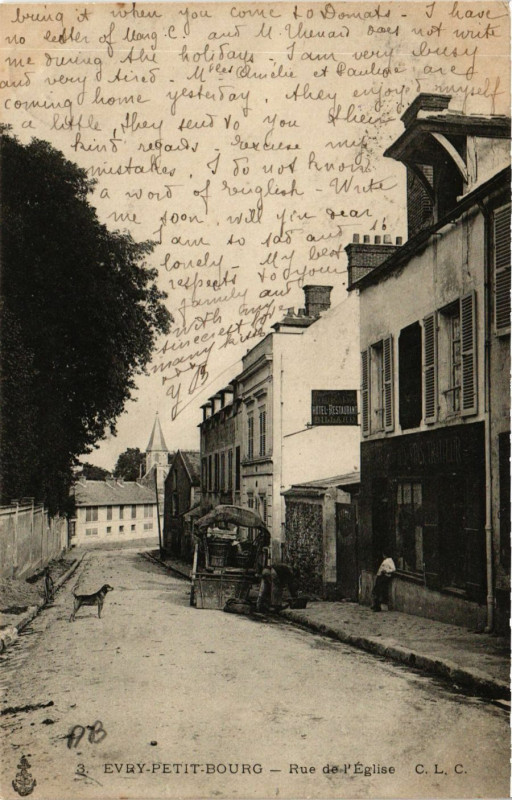 bring it when you come to Domats - I have
no letter of Marg. C. and M. Thenard does not write
me during the holidays - I am very busy
and very tired - Mlles Amélie et Pauline are
coming home yesterday, they enjoy'd myself
a little, they send to you their
kind regards - Excuse my
mistakes, I do not know
a word of English - Write
me soon, will you dear
I am so sad and
lonely - My best
respects to your
family and
with my
sincerest love
many kisses
Y B
HÔTEL-RESTAURANT
BILLARD
RESTAURANT
3. EVRY-PETIT-BOURG — Rue de l'Église C. L. C.